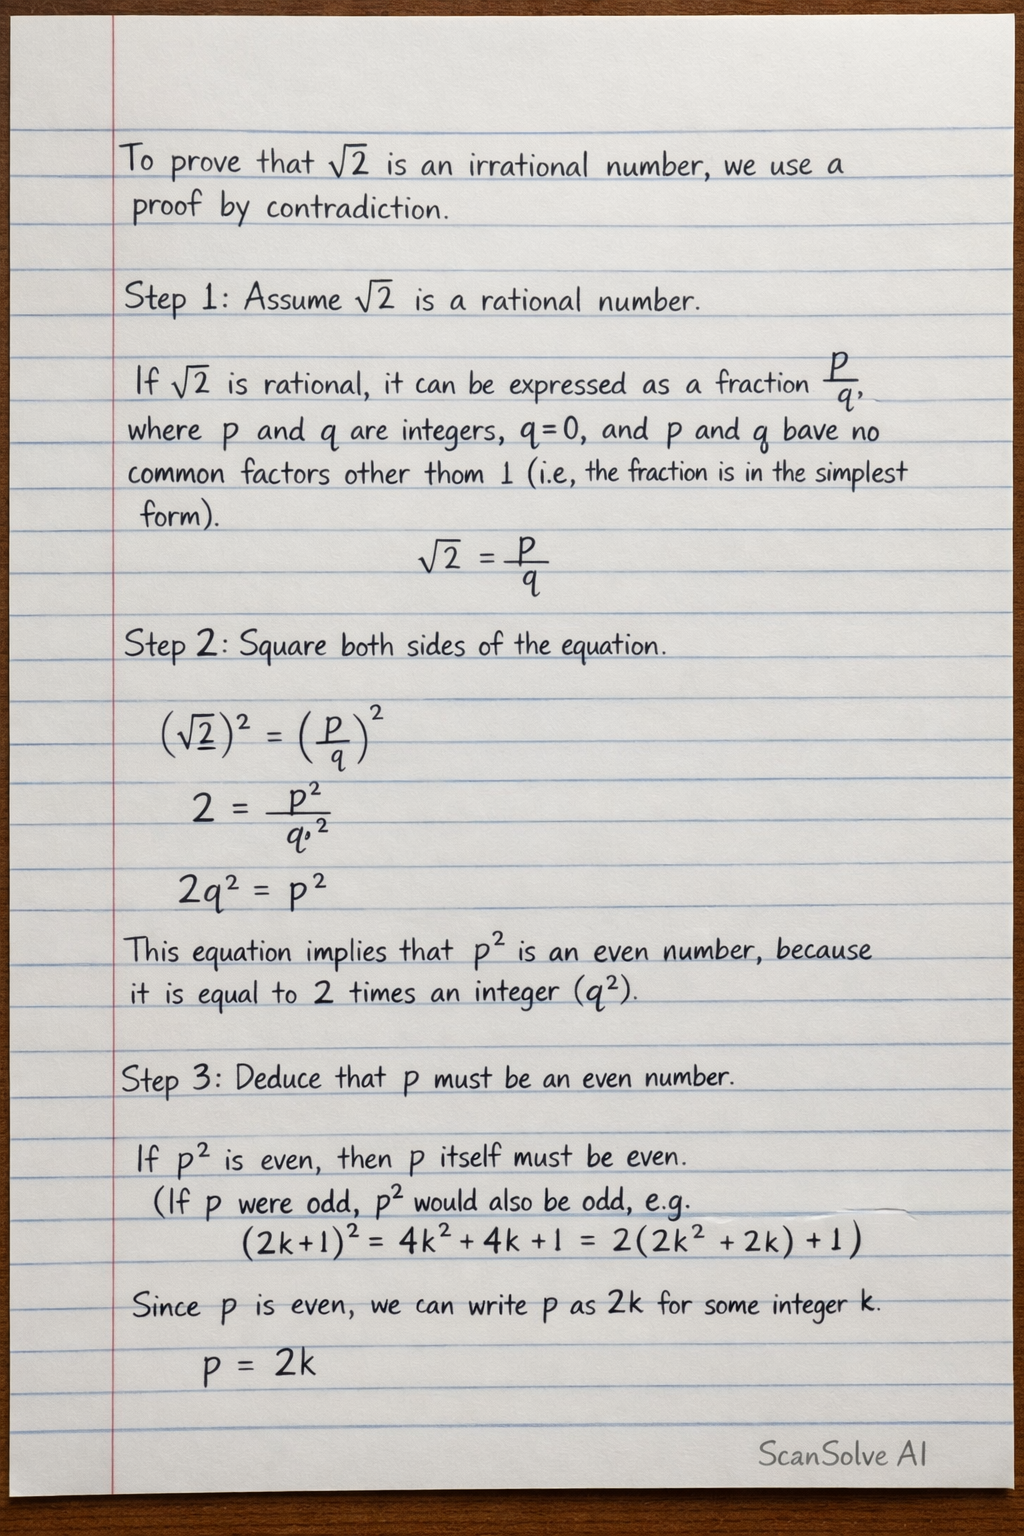 To prove that √2 is an irrational number, we use a
proof by contradiction.
Step 1: Assume √2 is a rational number.
If √2 is rational, it can be expressed as a fraction p/q,
where p and q are integers, q=0, and p and q bave no
common factors other thom 1 (i.e, the fraction is in the simplest
form).
√2 = p/q
Step 2: Square both sides of the equation.
(√2)² = (p/q)²
2 = p²/q²
2q² = p²
This equation implies that p² is an even number, because
it is equal to 2 times an integer (q²).
Step 3: Deduce that p must be an even number.
If p² is even, then p itself must be even.
(If p were odd, p² would also be odd, e.g.
(2k+1)² = 4k² + 4k + 1 = 2(2k² + 2k) + 1)
Since p is even, we can write p as 2k for some integer k.
p = 2k
ScanSolve AI